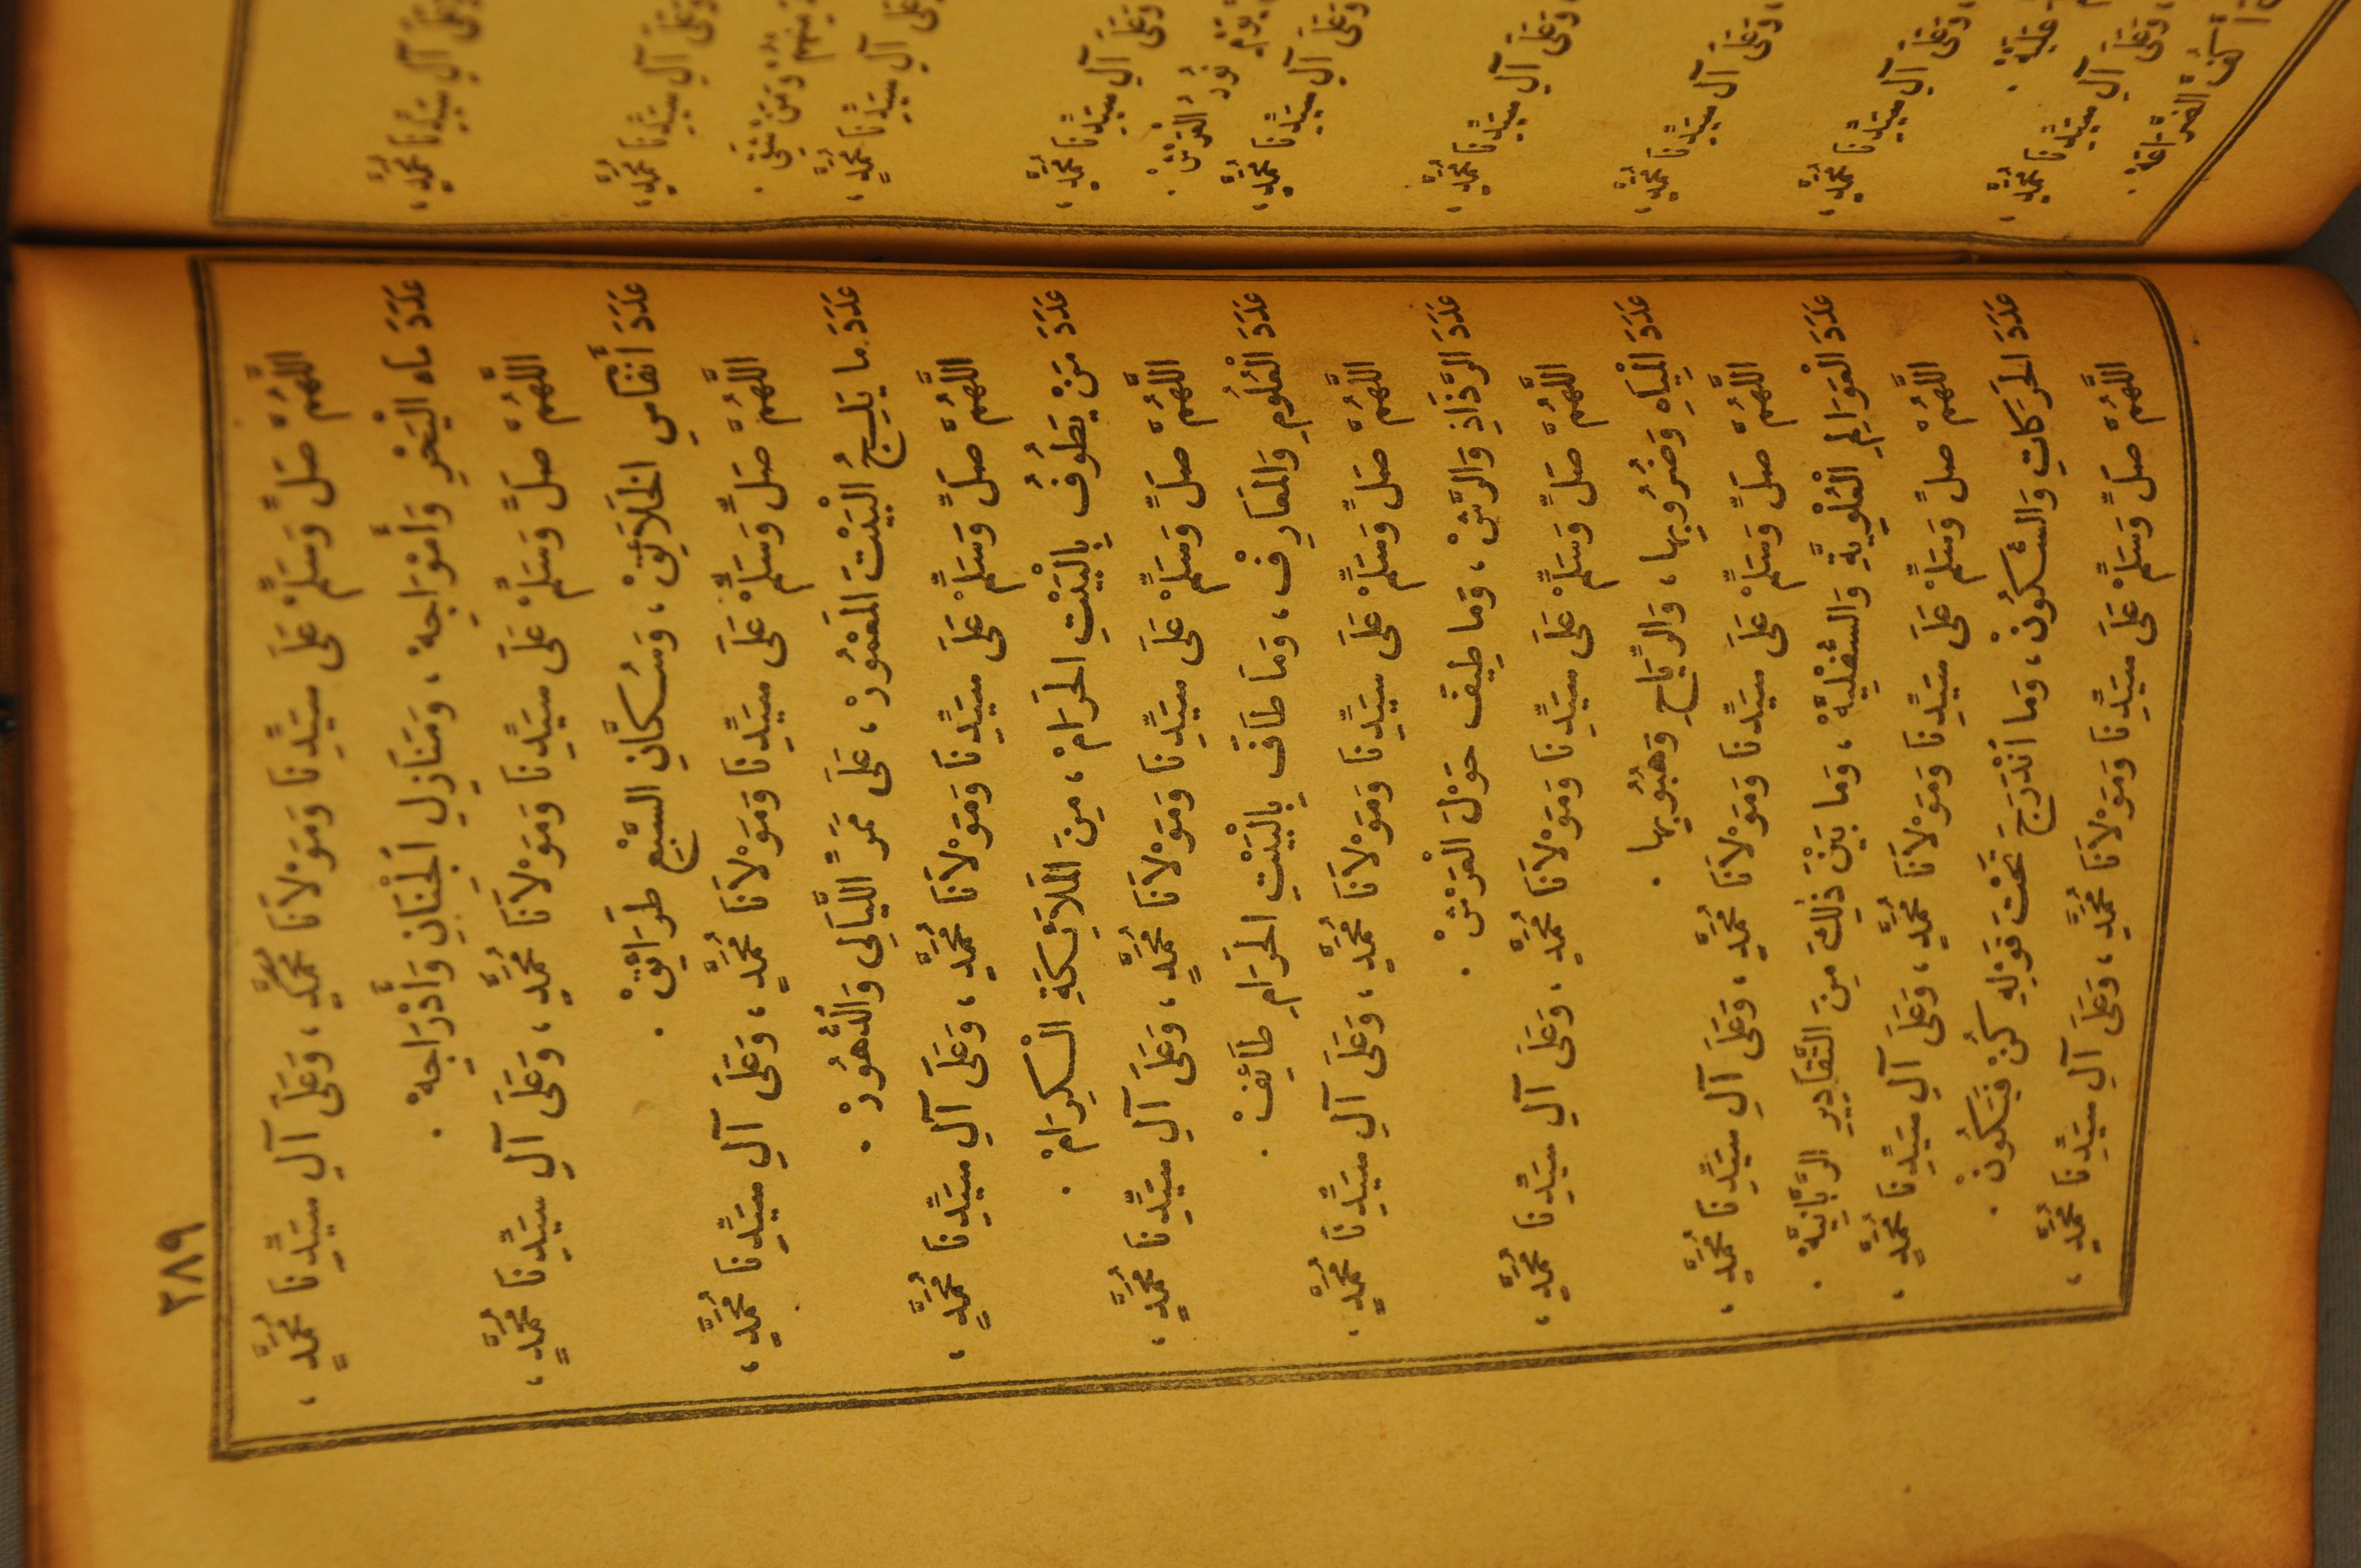 ٢٨٩
اللَّهُمَّ صَلِّ وَسَلِّمْ عَلَى سَيِّدِنَا وَمَوْلَانَا مُحَمَّدٍ، وَعَلَى آلِ سَيِّدِنَا مُحَمَّدٍ،
عَدَدَ مَاءِ الْبَحْرِ وَأَمْوَاجِهْ، وَمَنَازِلِ الْجِنَانِ وَأَدْرَاجِهْ.
اللَّهُمَّ صَلِّ وَسَلِّمْ عَلَى سَيِّدِنَا وَمَوْلَانَا مُحَمَّدٍ، وَعَلَى آلِ سَيِّدِنَا مُحَمَّدٍ،
عَدَدَ أَنْفَاسِ الْخَلَائِقْ، وَسُكَّانِ السَّبْعِ طَرَائِقْ.
اللَّهُمَّ صَلِّ وَسَلِّمْ عَلَى سَيِّدِنَا وَمَوْلَانَا مُحَمَّدٍ، وَعَلَى آلِ سَيِّدِنَا مُحَمَّدٍ،
عَدَدَ مَا يَلِجُ الْبَيْتَ الْمَعْمُورْ، عَلَى مَمَرِّ اللَّيَالِي وَالدُّهُورْ.
اللَّهُمَّ صَلِّ وَسَلِّمْ عَلَى سَيِّدِنَا وَمَوْلَانَا مُحَمَّدٍ، وَعَلَى آلِ سَيِّدِنَا مُحَمَّدٍ،
عَدَدَ مَنْ يَطُوفُ بِالْبَيْتِ الْحَرَامْ، مِنَ الْمَلَائِكَةِ الْكِرَامْ.
اللَّهُمَّ صَلِّ وَسَلِّمْ عَلَى سَيِّدِنَا وَمَوْلَانَا مُحَمَّدٍ، وَعَلَى آلِ سَيِّدِنَا مُحَمَّدٍ،
عَدَدَ الْعُلُومِ وَالْمَعَارِفْ، وَمَا طَافَ بِالْبَيْتِ الْحَرَامِ طَائِفْ.
اللَّهُمَّ صَلِّ وَسَلِّمْ عَلَى سَيِّدِنَا وَمَوْلَانَا مُحَمَّدٍ، وَعَلَى آلِ سَيِّدِنَا مُحَمَّدٍ،
عَدَدَ الرَّذَاذِ وَالرَّشْ، وَمَا طِيفَ حَوْلَ الْعَرْشْ.
اللَّهُمَّ صَلِّ وَسَلِّمْ عَلَى سَيِّدِنَا وَمَوْلَانَا مُحَمَّدٍ، وَعَلَى آلِ سَيِّدِنَا مُحَمَّدٍ،
عَدَدَ الْمِيَاهِ وَضُرُوبِهَا، وَالرِّيَاحِ وَهُبُوبِهَا.
اللَّهُمَّ صَلِّ وَسَلِّمْ عَلَى سَيِّدِنَا وَمَوْلَانَا مُحَمَّدٍ، وَعَلَى آلِ سَيِّدِنَا مُحَمَّدٍ،
عَدَدَ الْعَوَالِمِ الْعُلْوِيَّةِ وَالسُّفْلِيَّهْ، وَمَا بَيْنَ ذٰلِكَ مِنَ التَّقَادِيرِ الرَّبَّانِيَّهْ.
اللَّهُمَّ صَلِّ وَسَلِّمْ عَلَى سَيِّدِنَا وَمَوْلَانَا مُحَمَّدٍ، وَعَلَى آلِ سَيِّدِنَا مُحَمَّدٍ،
عَدَدَ الْحَرَكَاتِ وَالسُّكُونْ، وَمَا انْدَرَجَ تَحْتَ قَوْلِهِ كُنْ فَيَكُونْ.
اللَّهُمَّ صَلِّ وَسَلِّمْ عَلَى سَيِّدِنَا وَمَوْلَانَا مُحَمَّدٍ، وَعَلَى آلِ سَيِّدِنَا مُحَمَّدٍ،
وَعَلَى آلِ سَيِّدِنَا مُحَمَّدٍ،
وَعَلَى آلِ سَيِّدِنَا مُحَمَّدٍ،
وَعَلَى آلِ سَيِّدِنَا مُحَمَّدٍ،
وَعَلَى آلِ سَيِّدِنَا مُحَمَّدٍ،
وَعَلَى آلِ سَيِّدِنَا مُحَمَّدٍ،
وَعَلَى آلِ سَيِّدِنَا مُحَمَّدٍ،
وَعَلَى آلِ سَيِّدِنَا مُحَمَّدٍ،
وَعَلَى آلِ سَيِّدِنَا مُحَمَّدٍ،
وَعَلَى آلِ سَيِّدِنَا مُحَمَّدٍ،